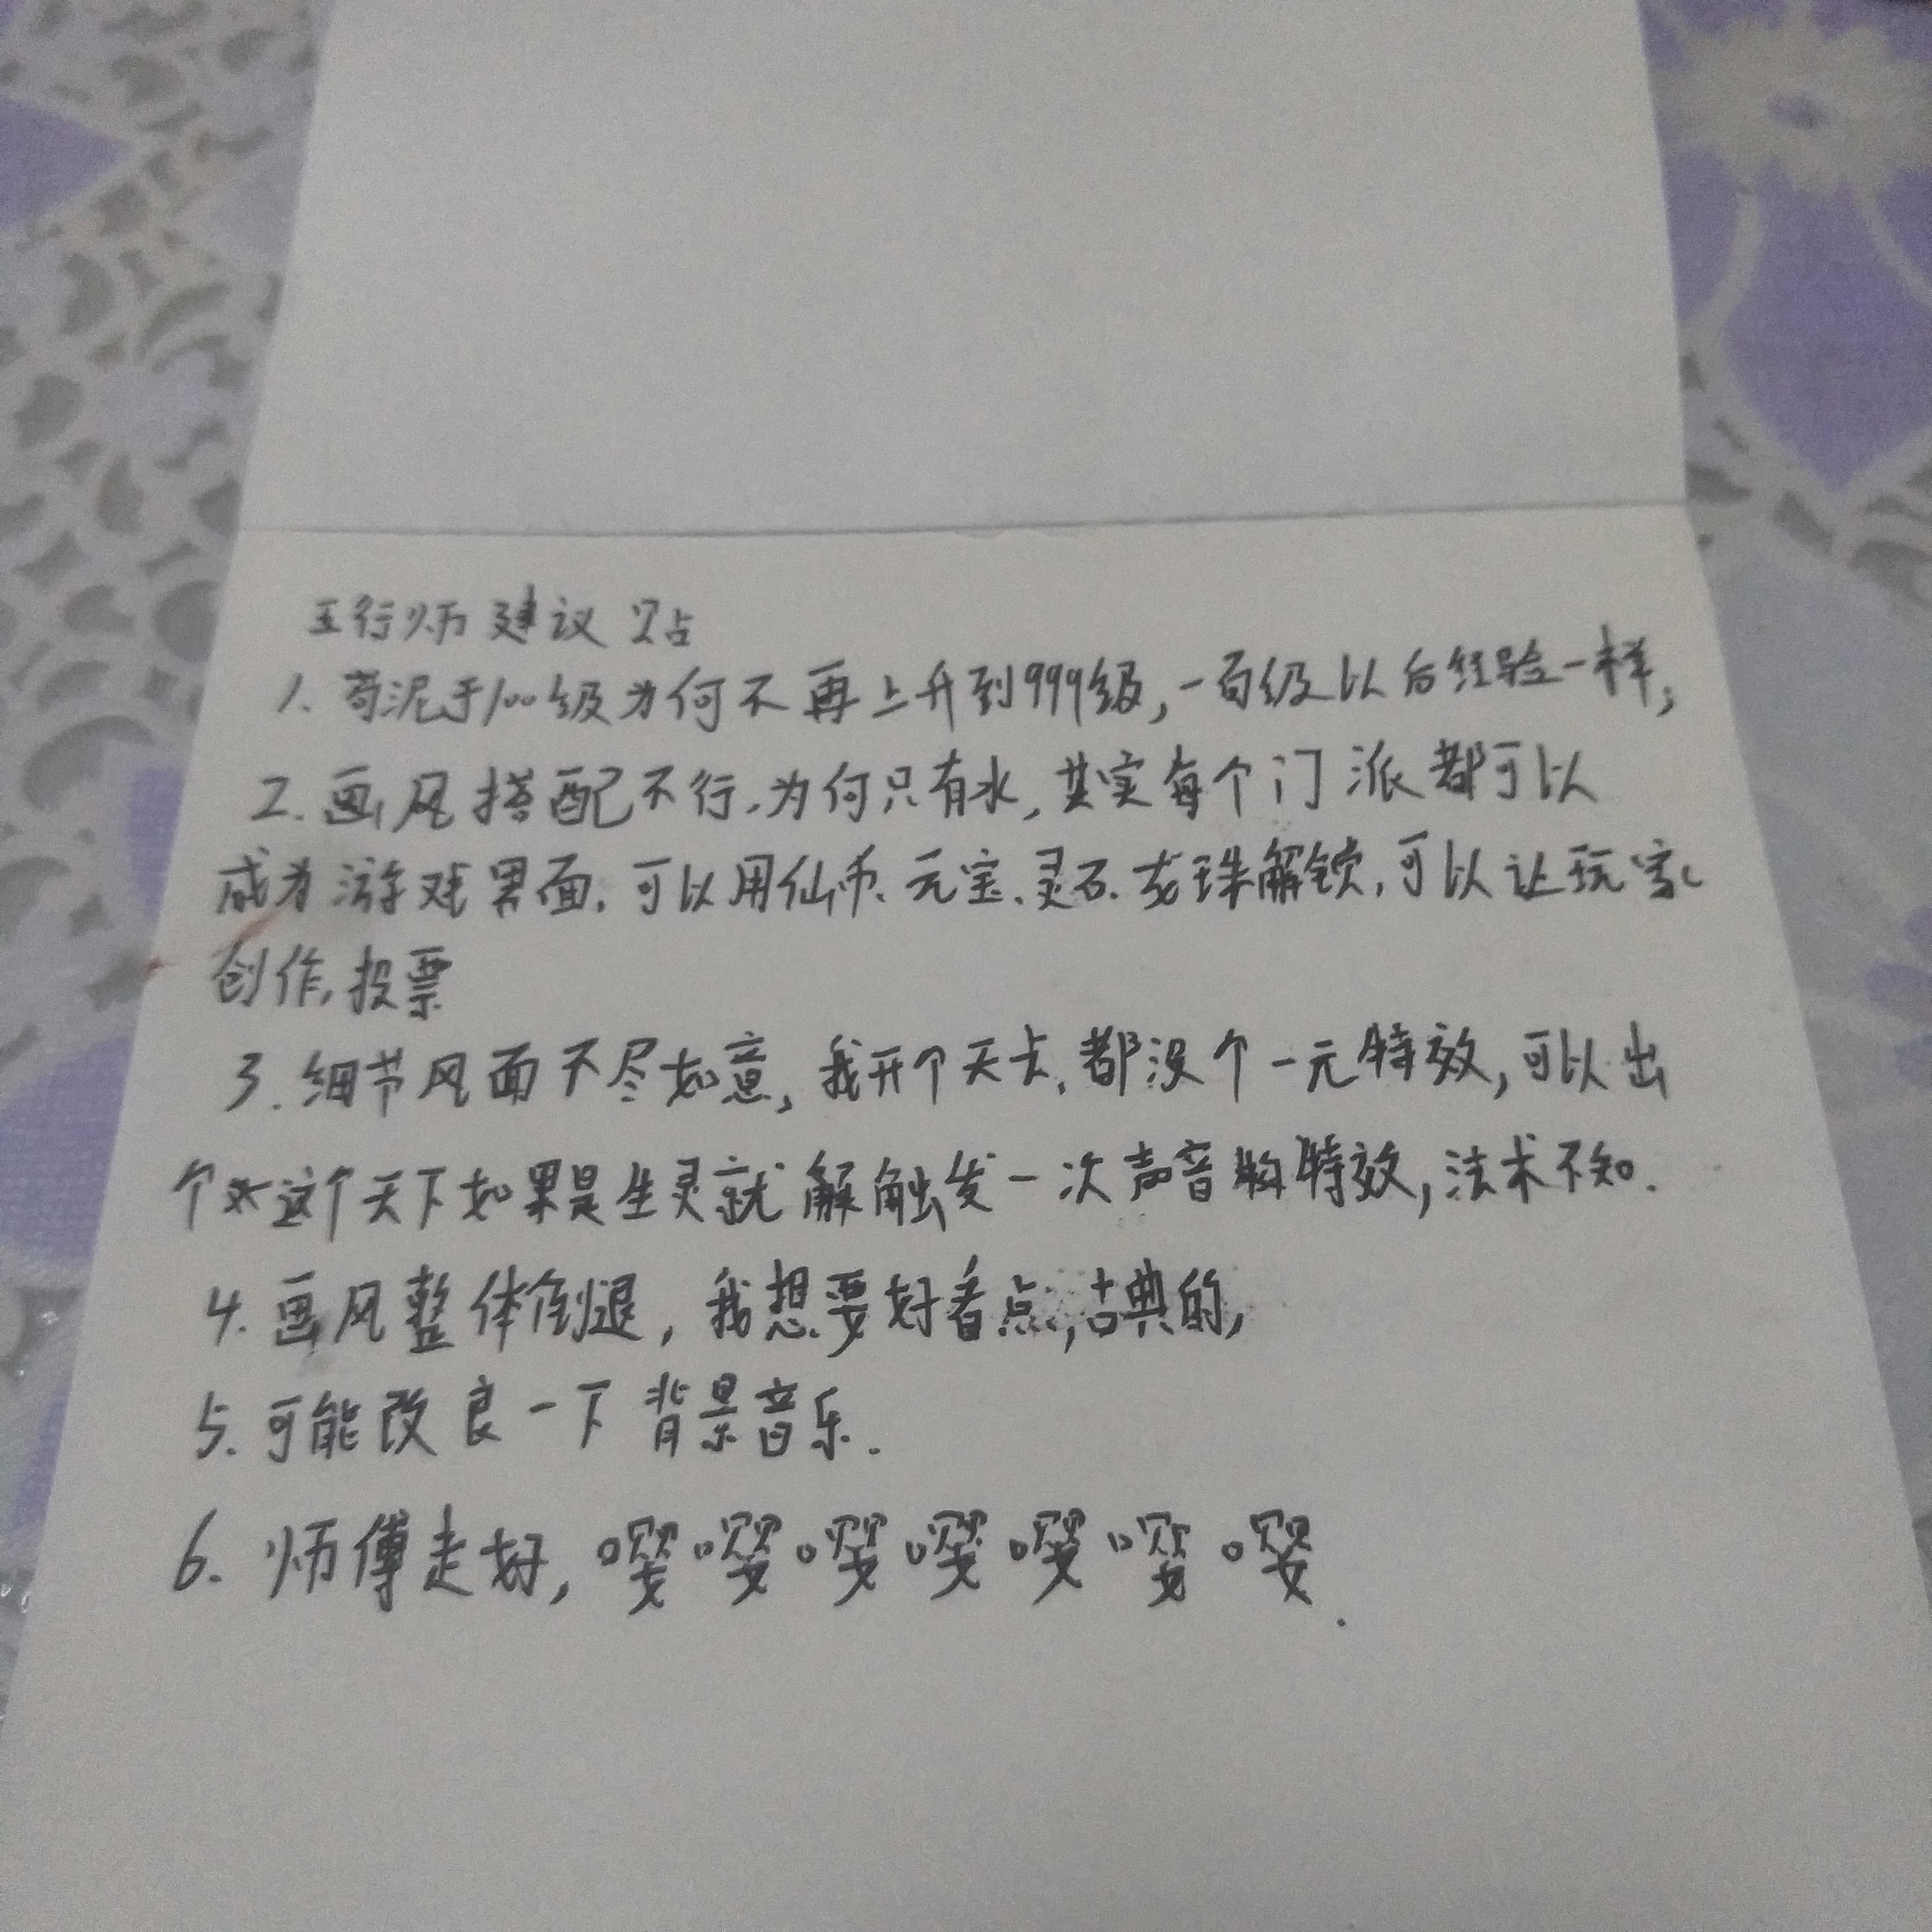 五行师建议贴
1、苟泥于100级为何不再上升到999级,一百级以后经验一样,
2.画风搭配不行,为何只有水,其实每个门派都可以
成为游戏界面,可以用仙币、元宝、灵石、龙珠解锁,可以让玩家
创作,投票
3.细节风面不尽如意,我开个天卡,都没个一元特效,可以出
个 这个天下如果是生灵就解触发一次声音 特效,法术不知.
4.画风整体倒退,我想要好看点,古典的,
5.可能改良一下背景音乐.
6.师傅走好,嘤嘤嘤嘤嘤嘤嘤.